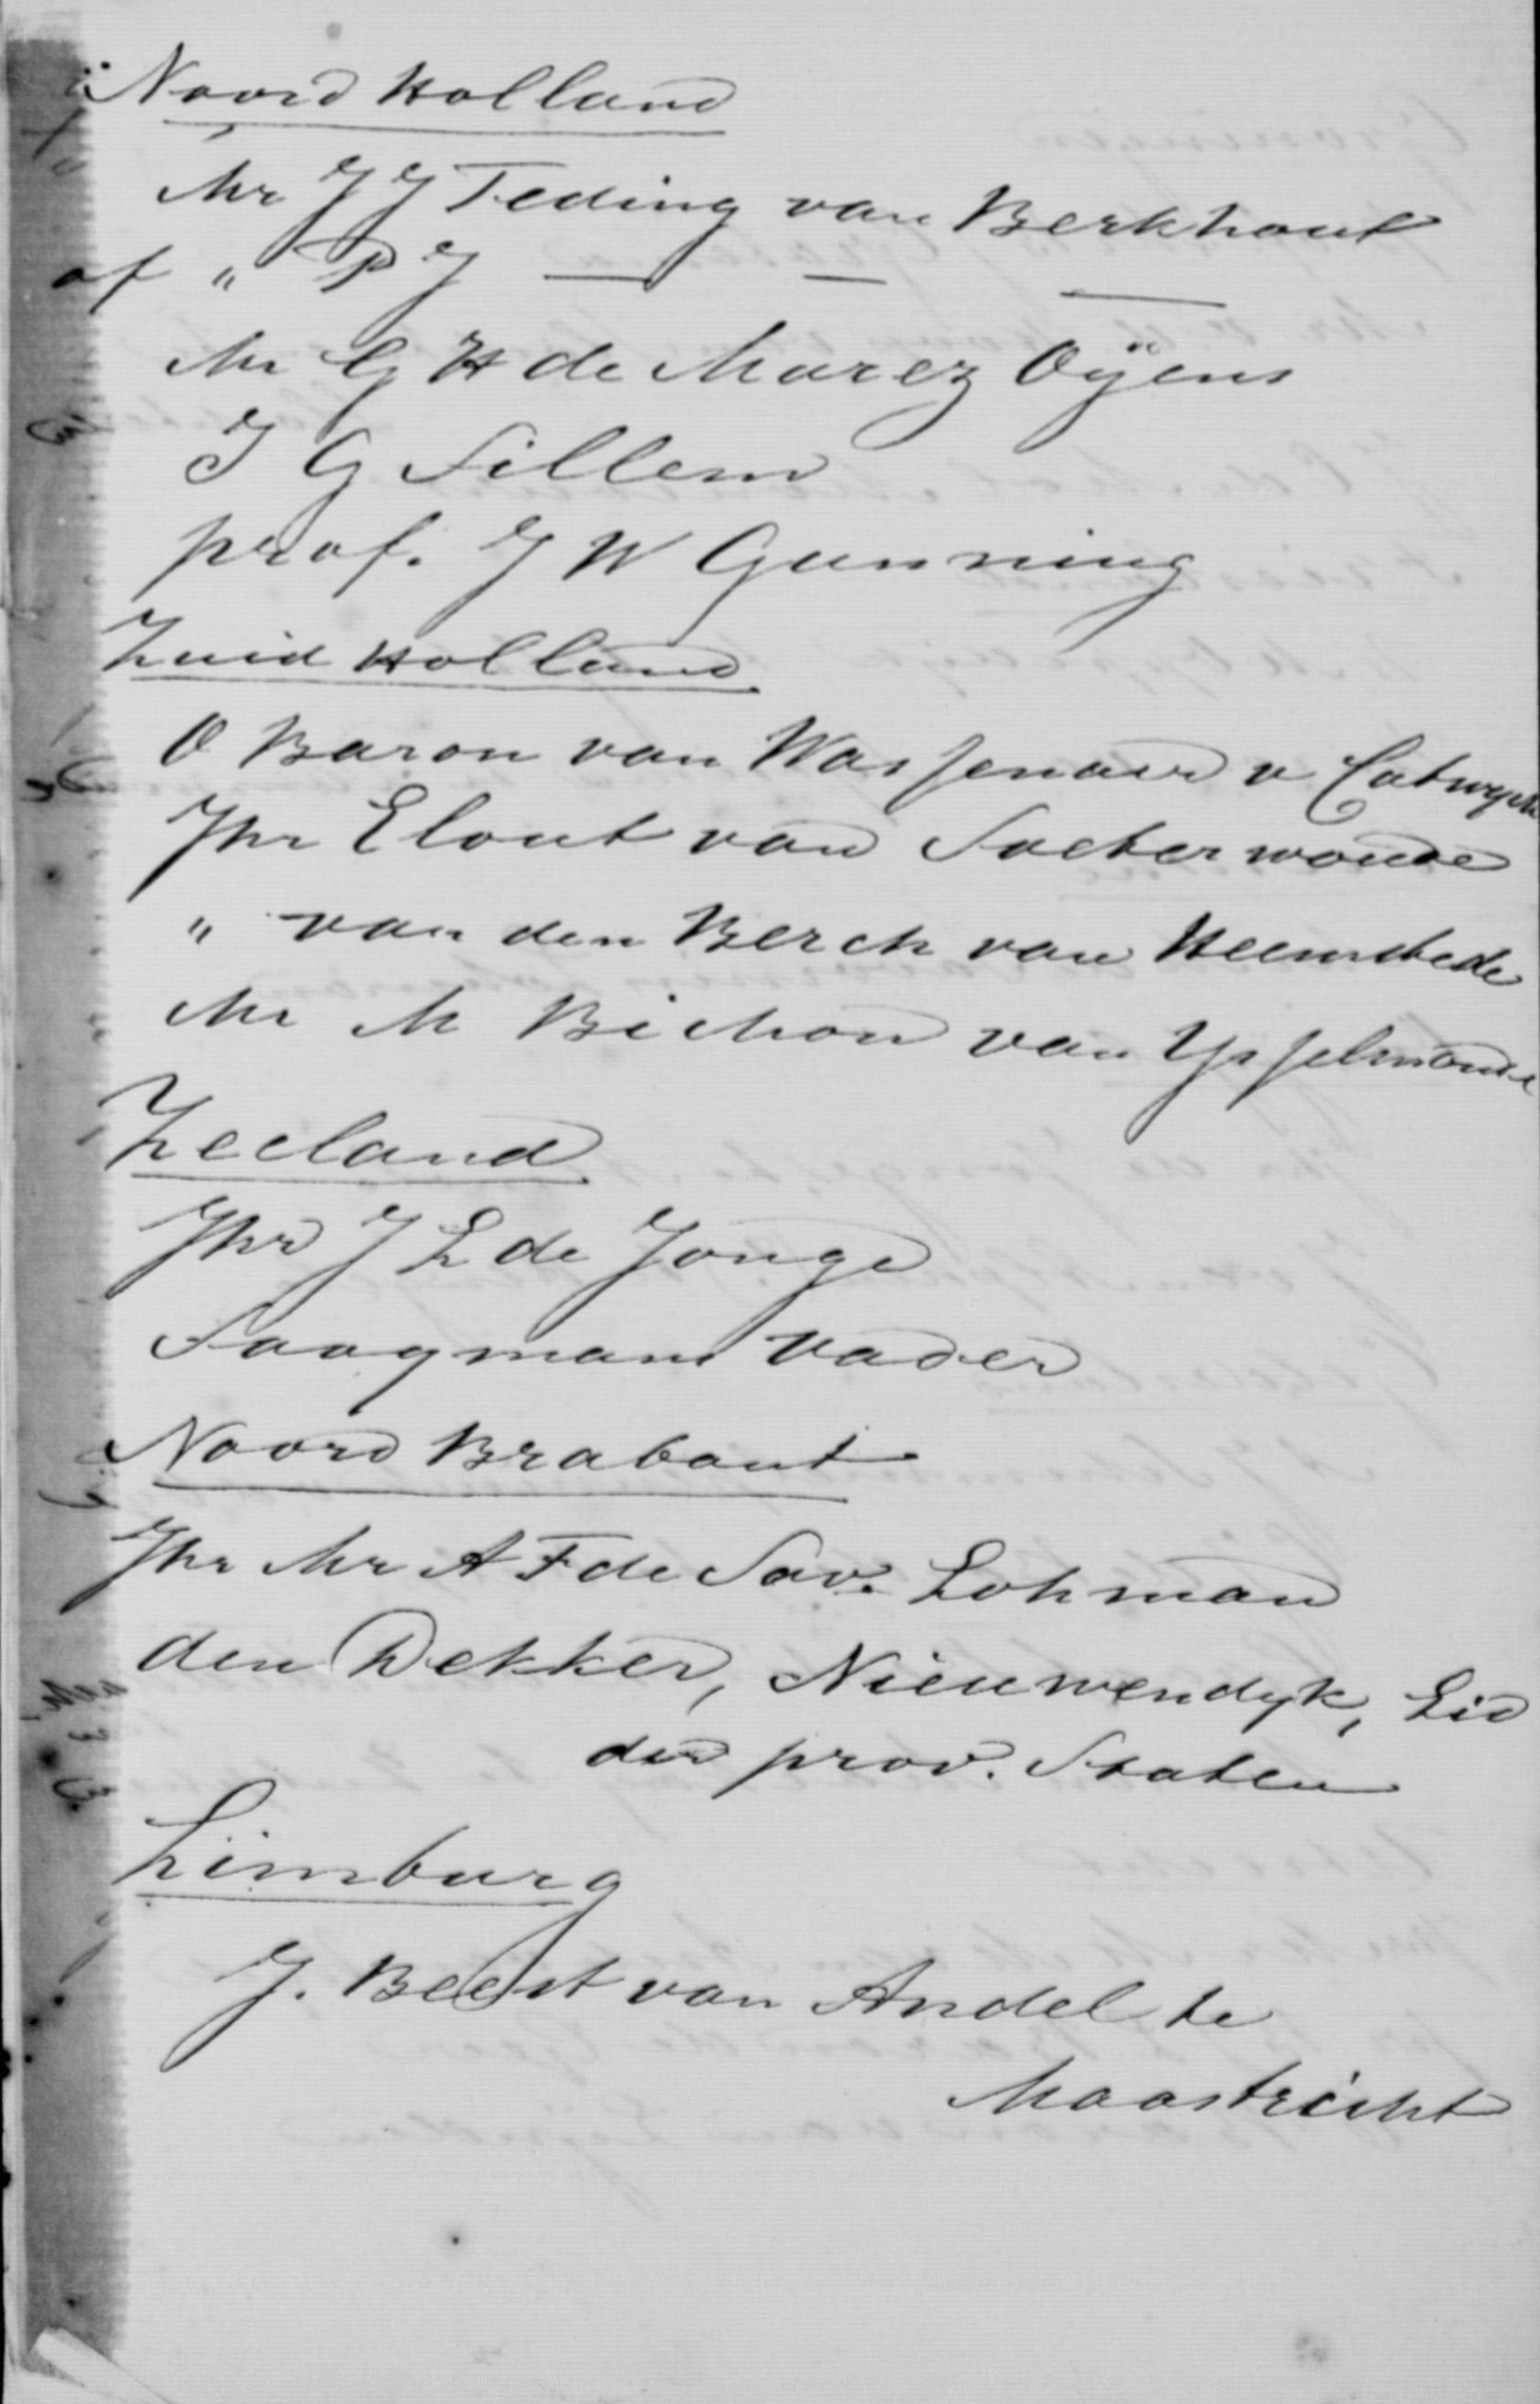 Noord Holland
Mr J J Teding van Berkhout
of " P J — — —
Mr G H de Marez Oÿens
J G Sillem
prof. J W Gunning
Zuid Holland
O Baron van Wassenaer v Catwyck
Jhr Elout van Soeterwoude
" van den Berch van Heemstede
Mr M Bichon van Ysselmonde
Zeeland
Jhr J L de Jonge
Saaymans Vader
Noord Brabant
Jhr Mr A F de Sav. Lohman
den Dekker, Nieuwendyk, Lid
der prov. Staten
Limburg
J. Beest van Andel te
Maastricht